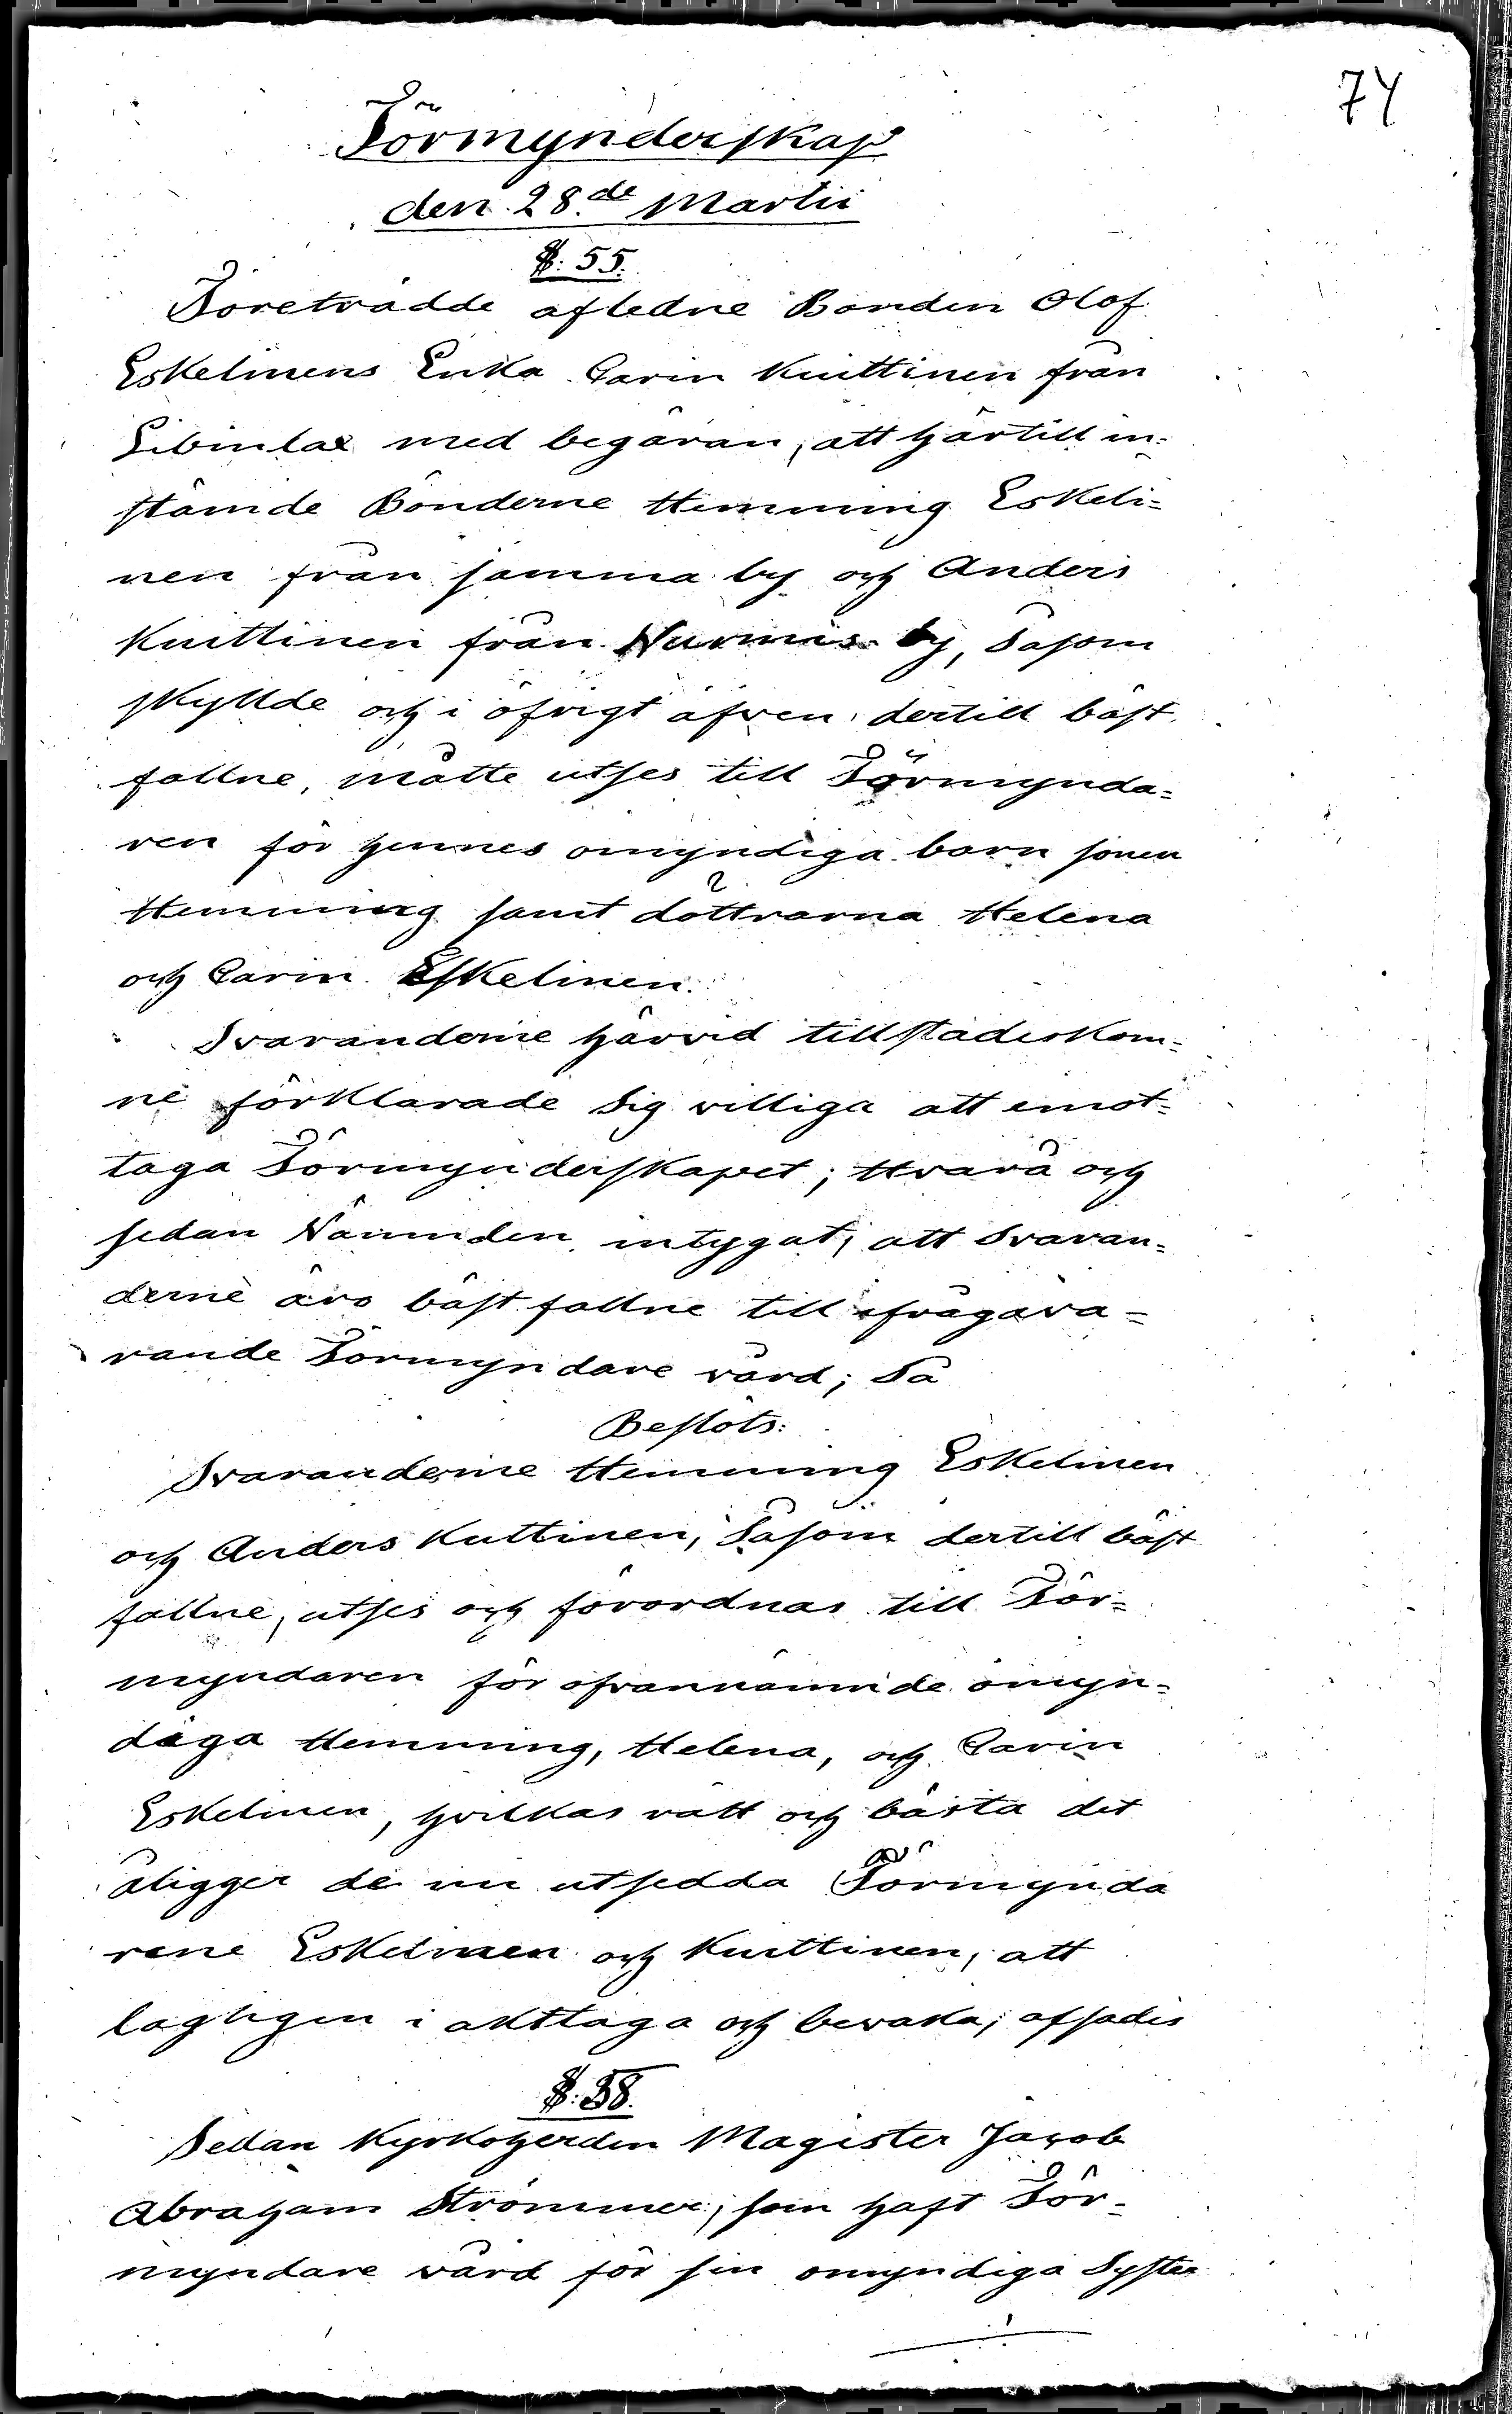 74
Förmynderskap
den 28de Martii
§. 55.
Företrädde afledne Bonden Olof
Eskelinens Enka Carin Knittinen från
Libinlax med begäran, att härtill in-
stämde Bönderne Hemming Eskeli-
nen från samma by och Anders
Knittinen från Nurmis by, Såsom
skyllde och i öfrigt äfven dertill bäst
fallne, måtte utses till Förmynda-
ren för hennes omyndiga barn sonen
Hemming samt döttrarna Helena
och Carin Eskelinen.
Svaranderne härvid tillstädeskom-
ne förklarade Sig villiga att emot-
taga Förmynderskapet; Hvarå och
sedan Nämnden intygat, att Svaran-
derne äro bäst fallne till ifrågava-
rande Förmyndare vård; Så
Beslöts:
Svaranderne Hemming Eskelinen
och Anders Kuttinen, Såsom dertill bäst
fallne, utses och förordnas till För-
myndaren för ofvannämnde omyn-
diga Hemming, Helena, och Carin
Eskelinen, hvilkas rätt och bästa det
åligger de nu utsedda Förmynda
rene Eskelinen och Knittinen, att
lagligen i akttaga och bevaka; afsades
§. 38.
Sedan Kyrkoherden Magister Jacob
Abraham Strömmer, som haft För-
myndare vård för sin omyndiga Syster